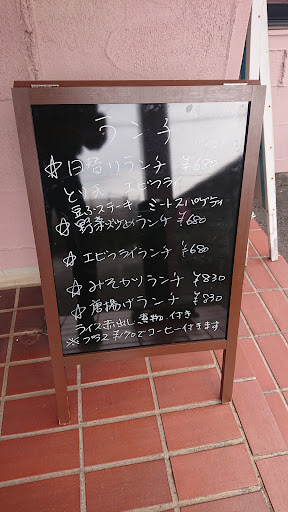 ランチ
☆日替りランチ ¥680
とり天 エビフライ
豆ふステーキ ミートスパゲティ
☆野菜 ランチ ¥680
☆エビフライランチ ¥680
☆みそカツランチ ¥830
☆唐揚げランチ ¥830
ライス 赤出し 煮物 付き
※プラス ¥170でコーヒー付きます